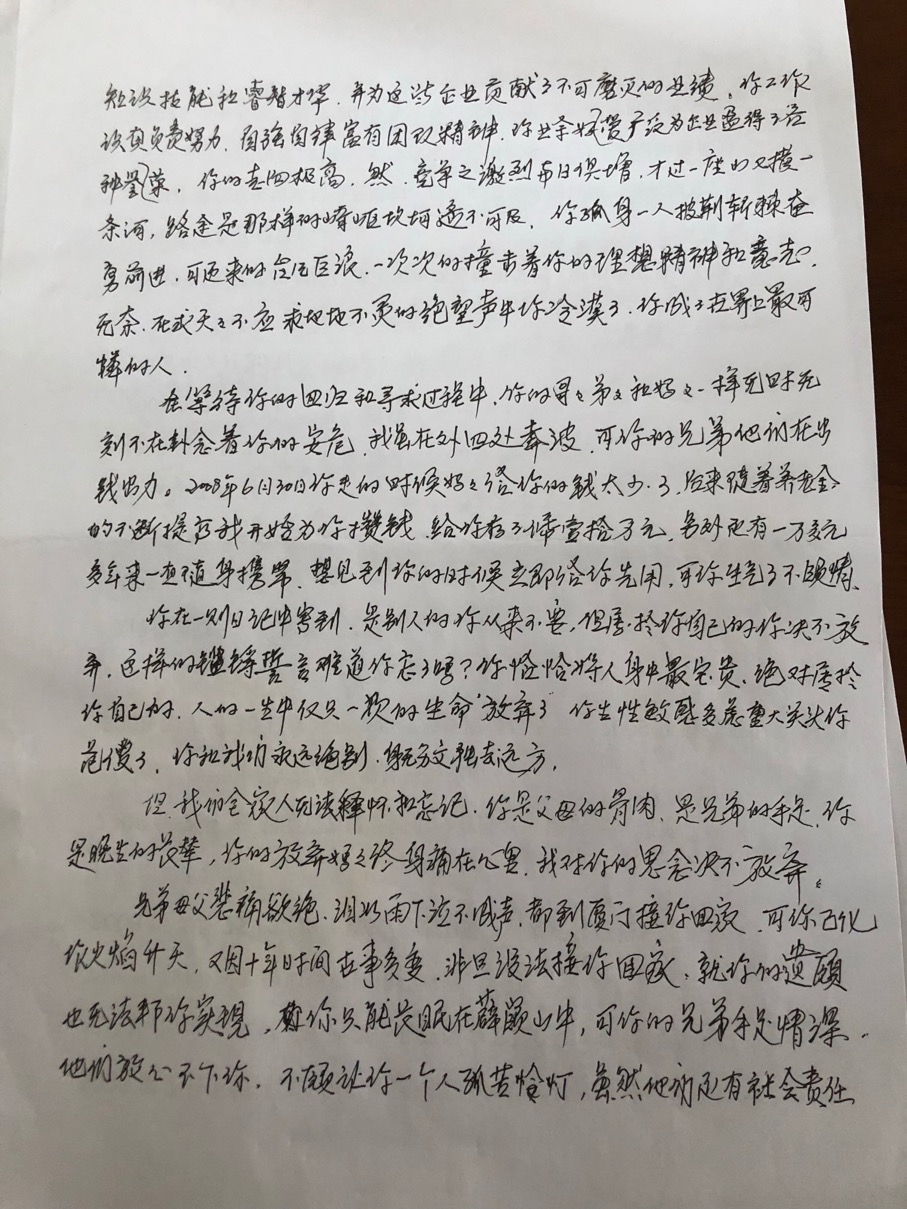 知识技能和睿智才华，并为这些企业贡献了不可磨灭的业绩，你工作
认真负责努力，自强自律富有团队精神，你业余好 为企业赢得了各
种誉荣，你的志向极高，然，竞争之激烈与日俱增，才过一座山又横一
条河，路途是那样的崎岖坎坷遥不可及，你孤身一人披荆斩棘奋
勇前进，可迎来的 巨浪，一次次的撞击着你的理想精神和意志，
无奈，在求天天不应求地地不灵的绝望声中你冷漠了，你成了世界上最可
怜的人．
在等待你的回归和寻求过程中，你的哥哥弟弟和妈妈一样无时无
刻不在卦念着你的安危，我虽在外四处奔波，可你的兄弟他们在出
钱出力。2008年6月30日你走的时候妈妈给你的钱太少了，后来随着养老金
的不断提高我开始为你攒钱，给你存了 壹拾万元，另外还有一万多元
多年来一直随身携带，想见到你的时候立即给你先用，可你生气了不领情。
你在一则日记中写到，是别人的你从来不要，但属於你自己的你决不放
弃，这样的铿锵誓言难道你忘了吗？你恰恰将人身中最宝贵、绝对属於
你自己的，人的一生中仅只一次的生命放弃了 你生性敏感多愁重大关头你
犯傻了，你和我们永远绝别，身无分文独去远方，
但，我们全家人无法释怀和忘记，你是父母的骨肉，是兄弟的手足，你
是晚生的长辈，你的放弃妈妈终身痛在心里，我对你的思念决不放弃。
兄弟母父悲痛欲绝，泪如雨下泣不成声，都到厦门接你回家，可你已化
作火焰升天，又因十年时间世事多变，非但没法接你回家，就你的遗愿
也无法帮你实现，你只能长眠在薛 山中，可你的兄弟手足情深，
他们放心不下你，不愿让你一个人孤苦怜仃，虽然他们还有社会责任